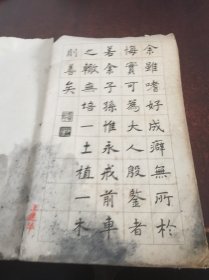 余雖嗜好成癖無所於
悔實可為大人殷鑒者
若余子孫惟永戒前車
之轍無培一土植一木
則善矣